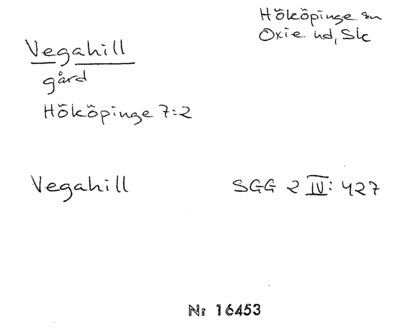 Hököpinge sn
Oxie hd, Sk
Vegahill
gård
Hököpinge 7:2
Vegahill SGG 2 IV: 427
Nr 16453